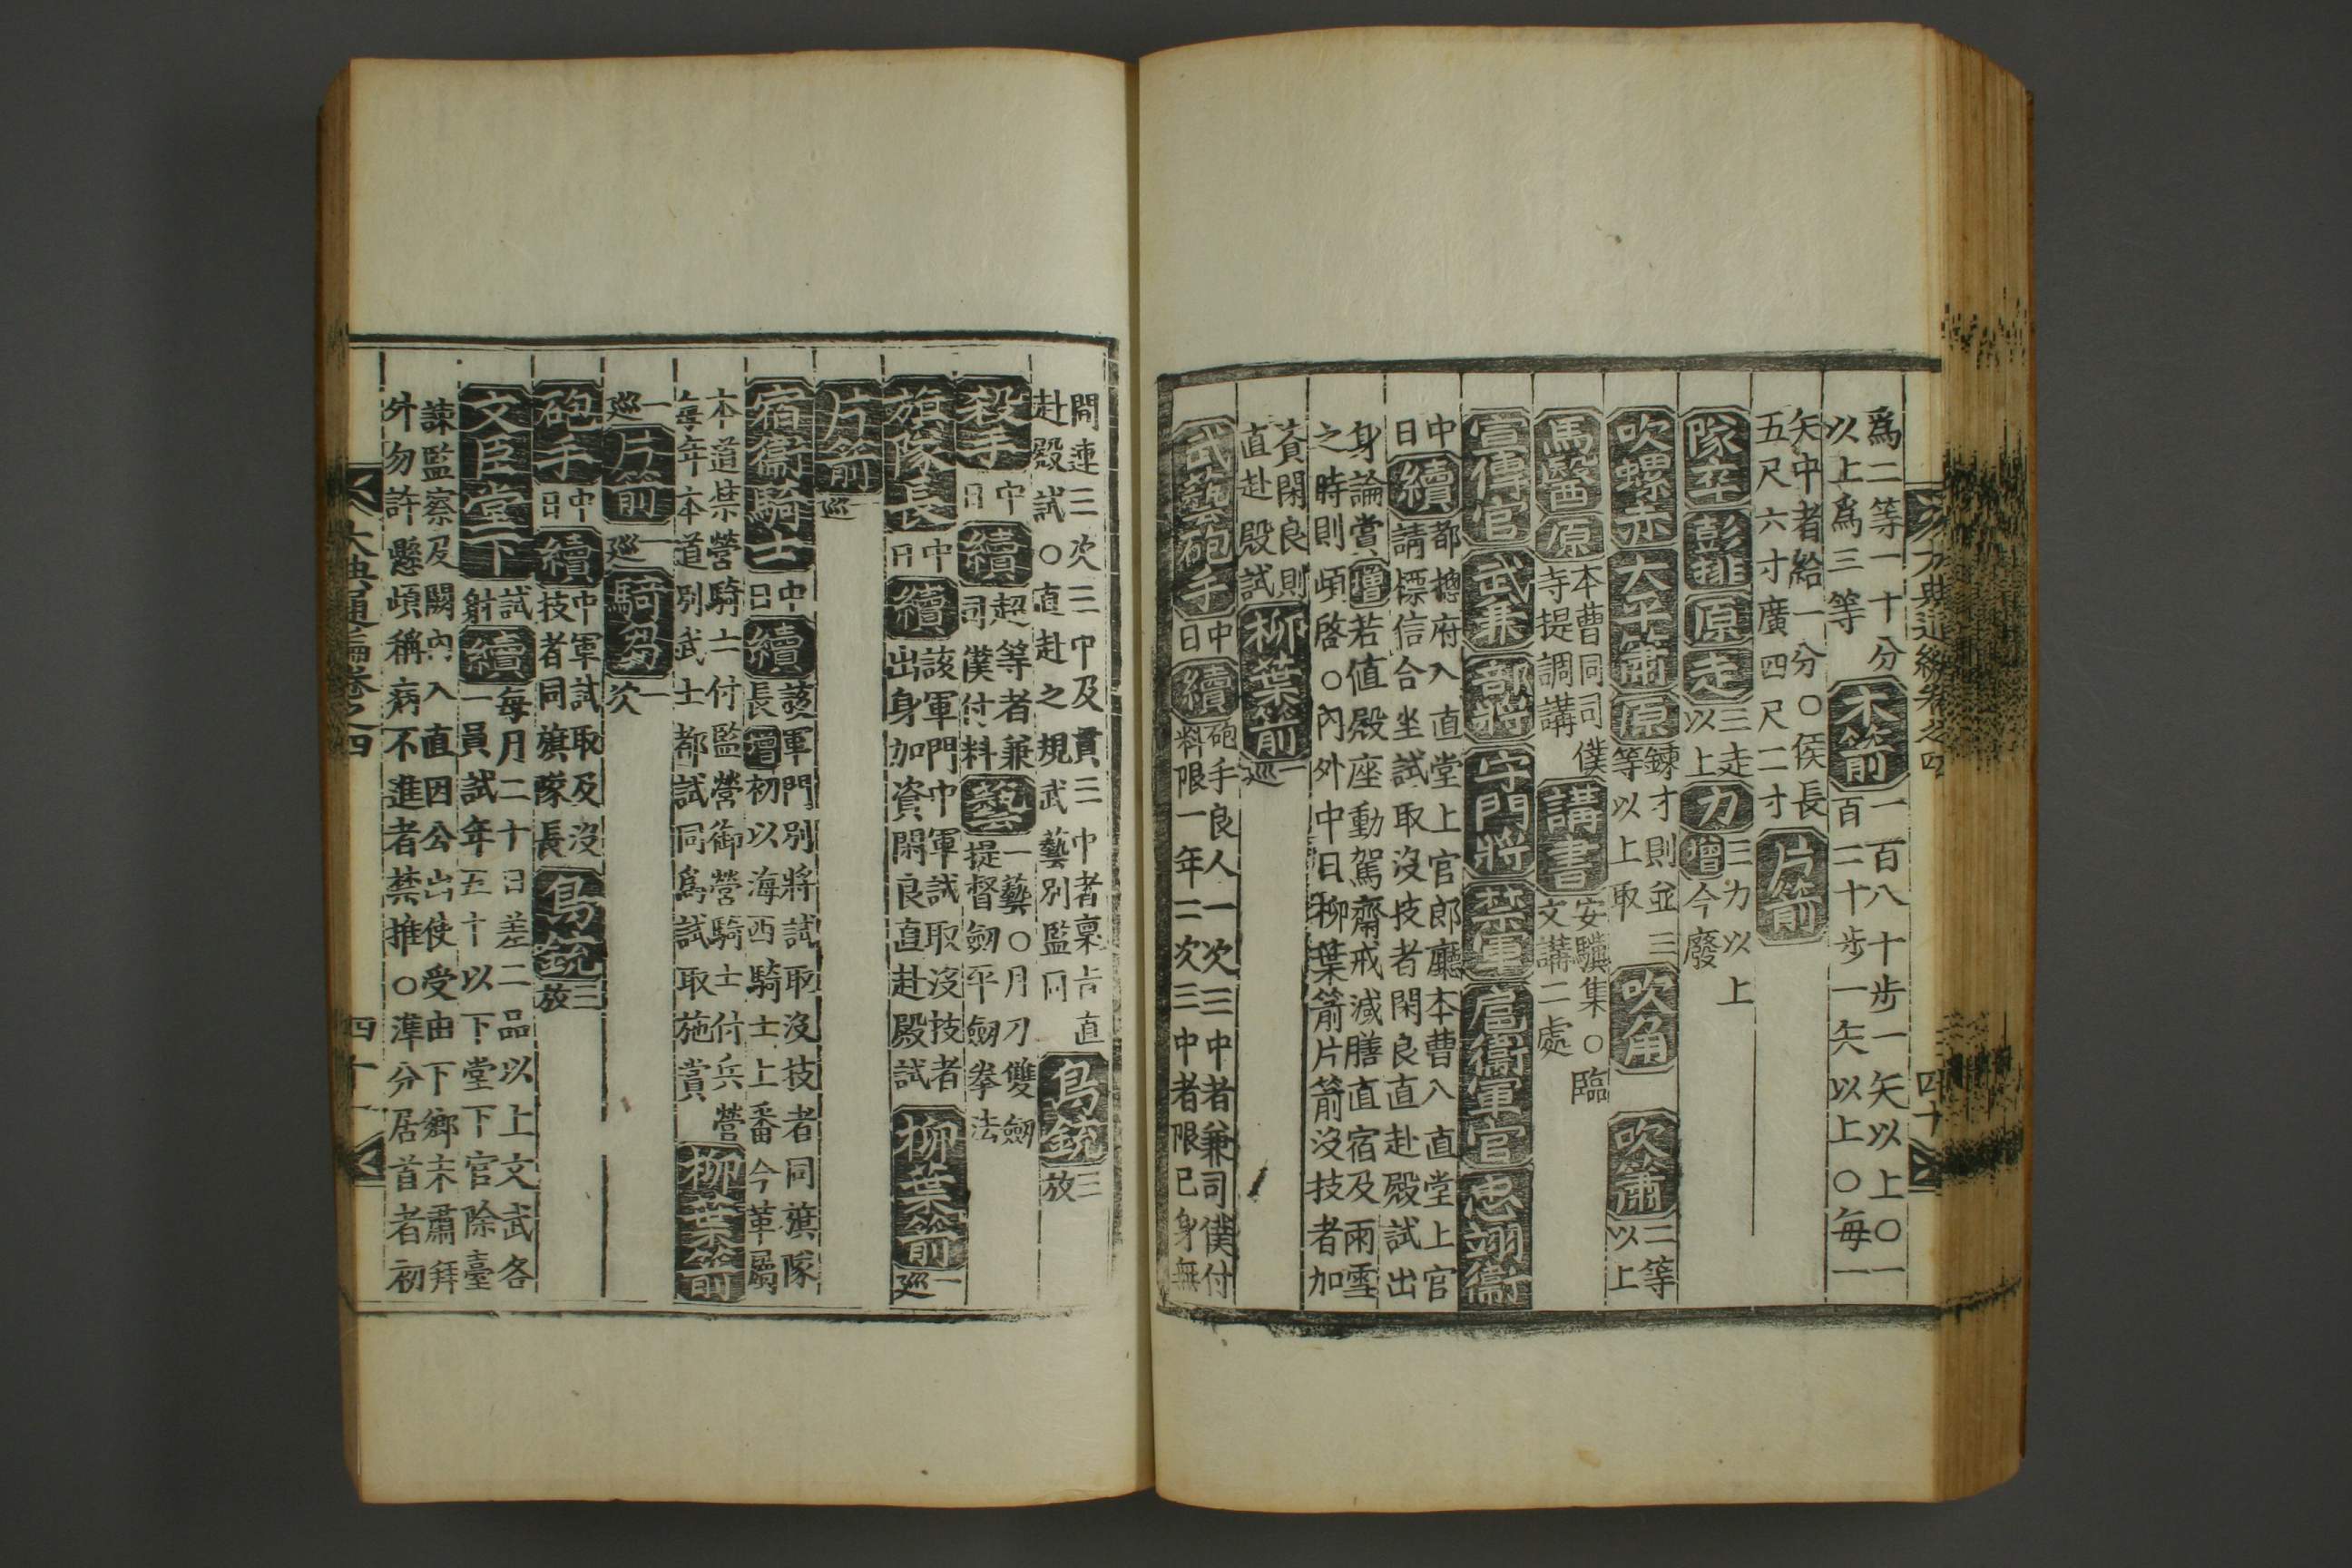 大典通編卷之四 四十
爲二等一十分
以上爲三等
木箭
一百八十步一矢以上○一
百二十步一矢以上○每一
矢中者給一分○侯長
五尺六寸廣四尺二寸
片箭
隊卒 彭排 原 走
三走
以上
力
三力以上
增今廢
吹螺赤 大平簫 原
鍊才則並三
等以上取
吹角
吹簫
二等
以上
馬醫 原
本曹同司僕
寺提調講
講書
安驥集○臨
文講二處
宣傳官 武兼 部將 守門將 禁軍 扈衞軍官 忠翊衞
中
日
續
都摠府入直堂上官郎廳本曹入直堂上官
請標信合坐試取沒技者閑良直赴殿試出
身論賞 增 若值殿座動駕齋戒減膳直宿及雨雪
之時則頉啓○內外中日柳葉箭片箭沒技者加
資閑良則
直赴殿試
柳葉箭
一
巡
武藝砲手
中
日
續
砲手良人一次三中者兼司僕付
料限一年二次三中者限已身無
間連三次三中及貫三中者稟旨直
赴殿試○直赴之規武藝別監同
鳥銃
三
放
殺手
中
日
續
超等者兼
司僕付料
藝
一藝○月刀雙劒
提督劒平劒拳法
旗隊長
中
日
續
該軍門中軍試取沒技者
出身加資閑良直赴殿試
柳葉箭
一
巡
片箭
一
巡
宿衞騎士
中
日
續
該軍門別將試取沒技者同旗隊
長 增 初以海西騎士上番今革屬
本道禁營騎士付監營御營騎士付兵營
每年本道別武士都試同爲試取施賞
柳葉箭
一
巡
片箭
一
巡
騎芻
一
次
砲手
中
日
續
中軍試取及沒
技者同旗隊長
鳥銃
三
放
文臣堂下
試
射
續
每月二十日差二品以上文武各
一員試年五十以下堂下官除臺
諫監察及闕內入直因公出使受由下鄉未肅拜
外勿許懸頉稱病不進者禁推○準分居首者初
大典通編卷之四 四十一